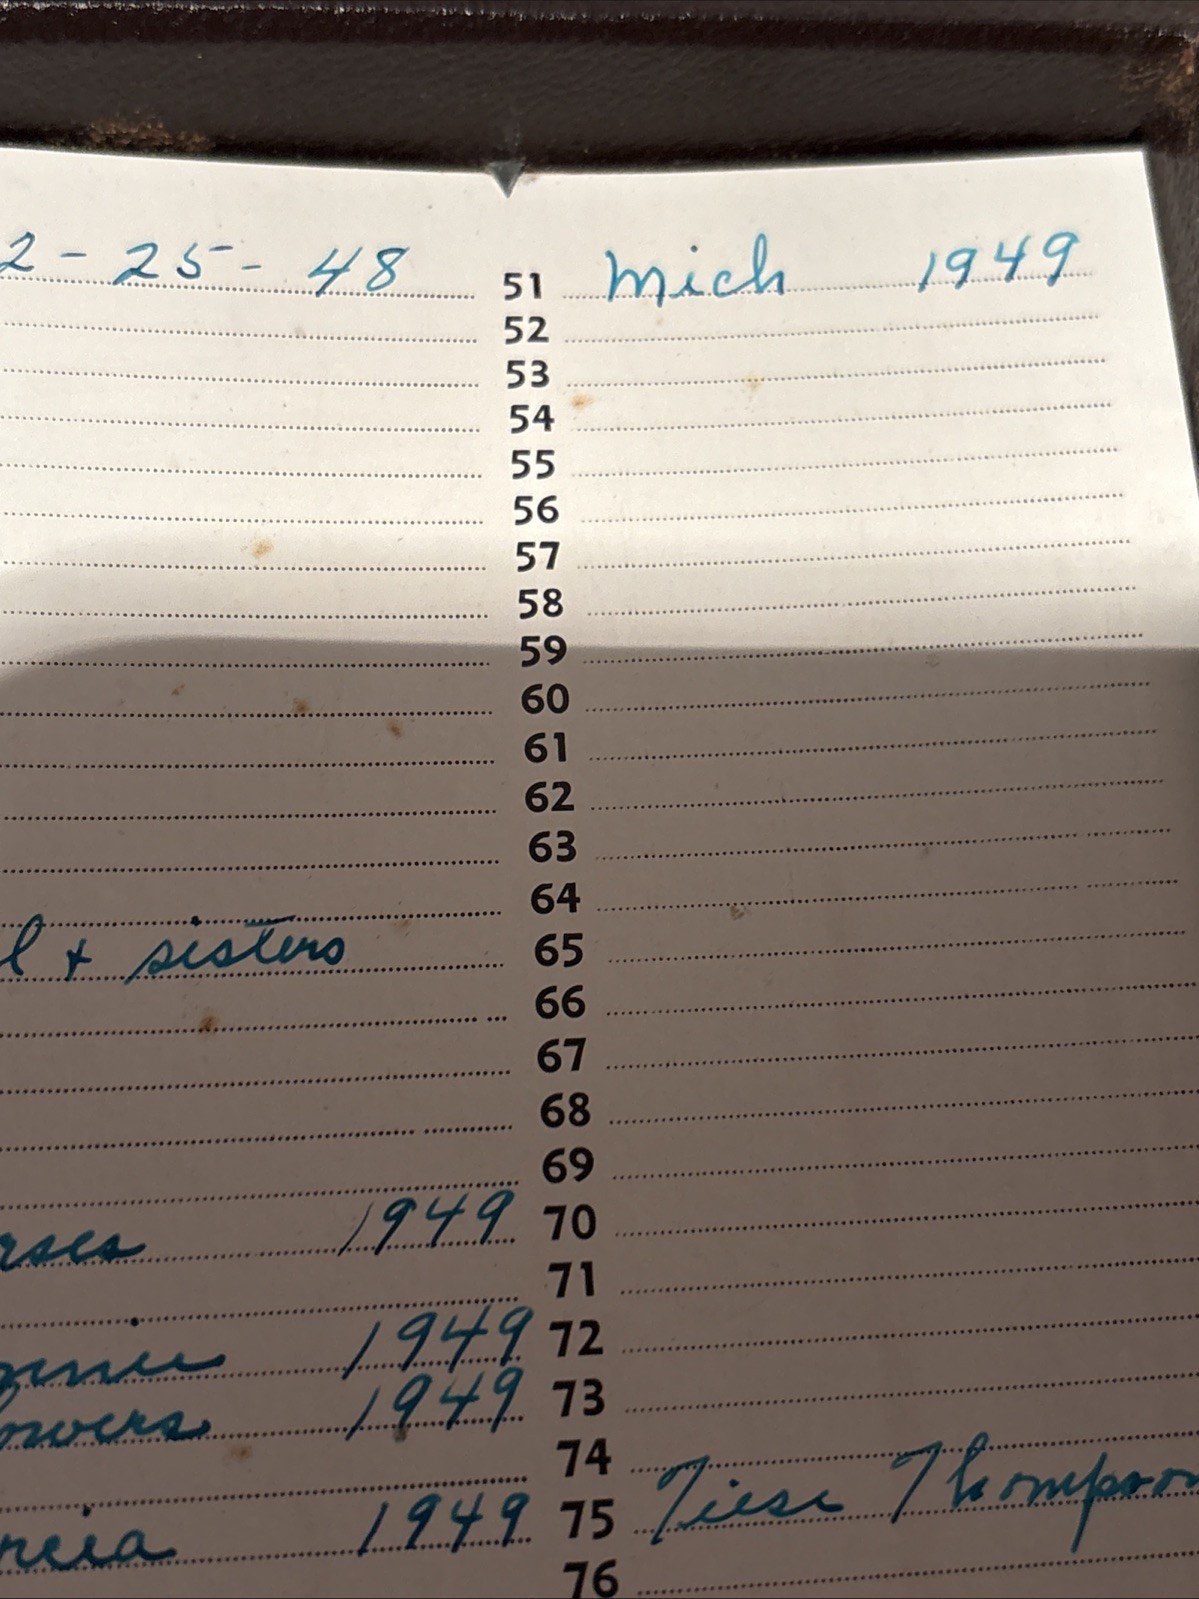 2 - 25 - 48 51 Mich 1949
52
53
54
55
56
57
58
59
60
61
62
63
64
l + sisters 65
66
67
68
69
1949 70
71
1949 72
owers 1949 73
74
1949 75 Thompson
76